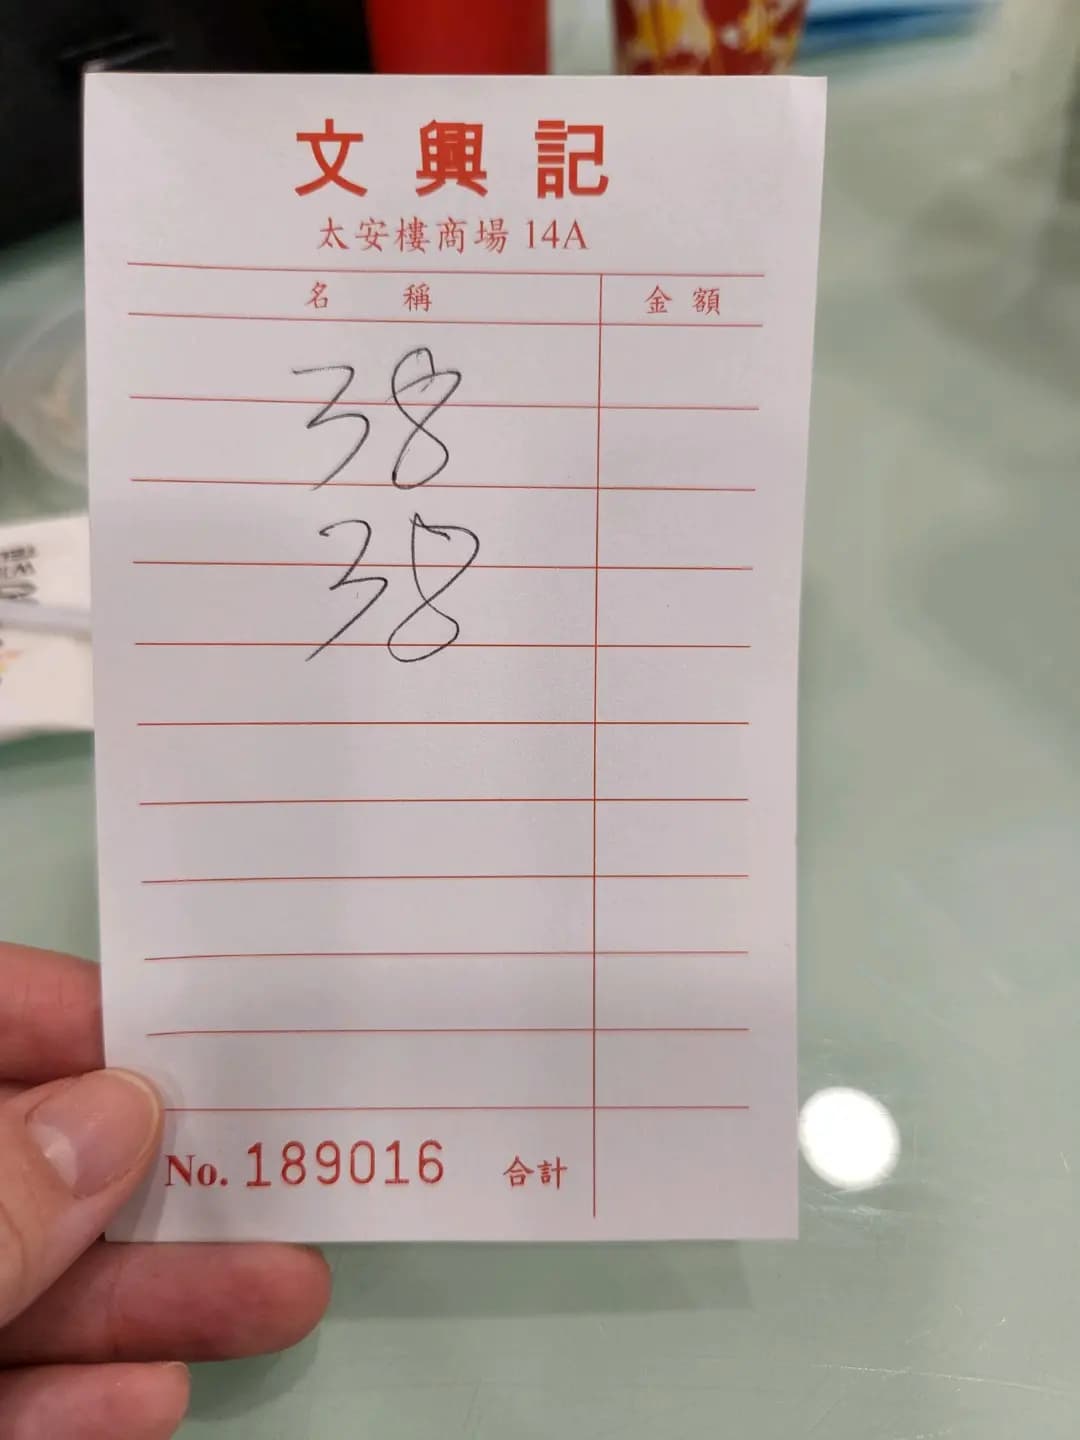 文興記
太安樓商場 14A
名 稱 金 額
38
38
No. 189016 合計